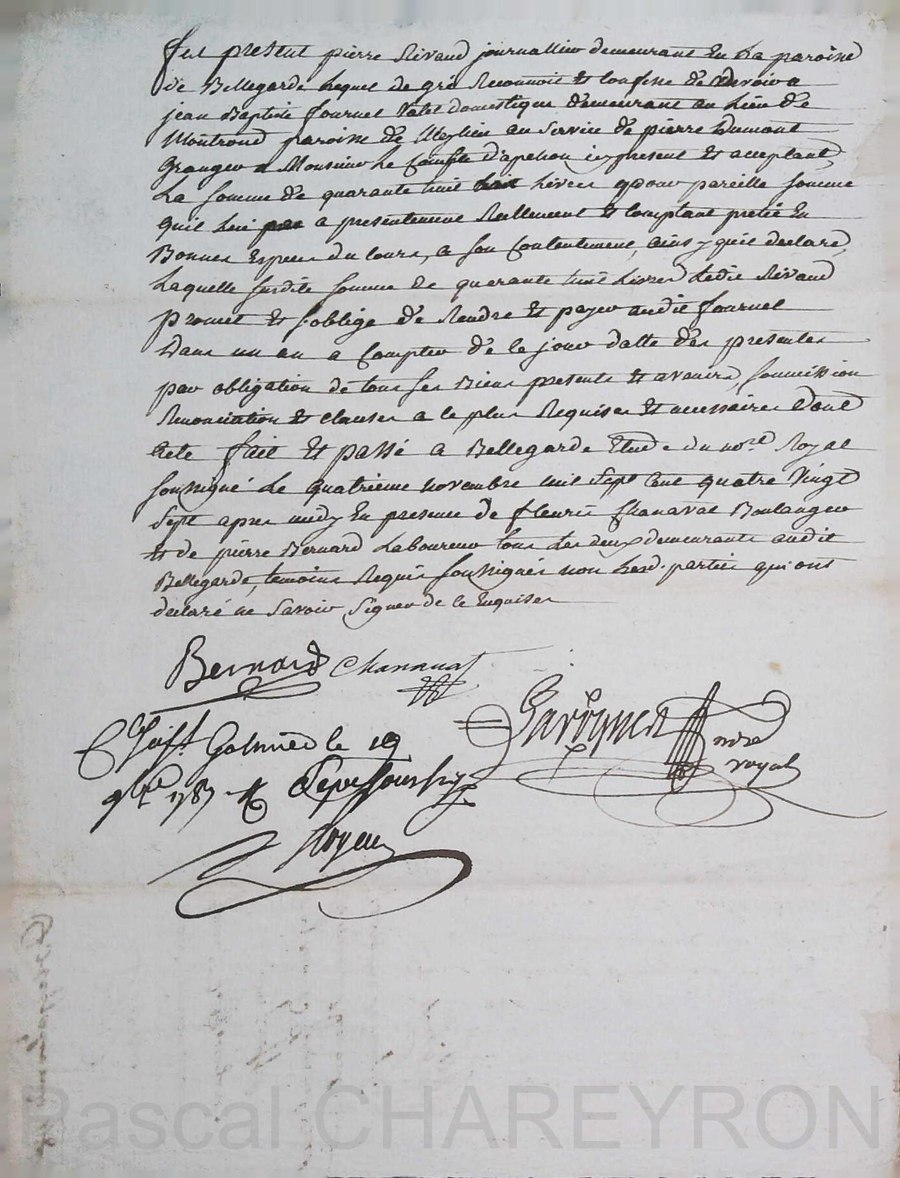 fut present pierre Rivaud journallier demeurant En La paroisse
de Bellegarde Lequel de gré Reconnoit Et Confesse de devoir a
jean Baptiste fournel Valet domestique demeurant au Lieu de
Montrond paroisse de Meylieu au Service de pierre Dumont
Granger a Monsieur Le Comte d'apchon icy present Et acceptant,
La Somme de quarante huit Livres pour pareille Somme
quil Lui a presentement Reellement Et Comptant pretté En
Bonnes Especes du Cours, a Son Contentement, ainsy quil declare,
Laquelle susditte Somme de quarante huit Livres Ledit Rivaud
promet Et S'oblige de Rendre Et payer audit fournel
Dans un an a Compter de Ce jour datte des presentes
par obligation de tous ses Biens presents Et avenirs, Soumission
Renonciation Et clauses a Ce plus Requises Et necessaires Dont
acte fait Et passé a Bellegarde Etude du no.re Royal
Soussigné Le quatrieme novembre mil Sept Cent quatre Vingt
Sept apres midy En presence de fleurie Chanavat Boulanger
Et de pierre Bernard Laboureur tous Les deux demeurants audit
Bellegarde, temoins Requis Soussignes non Lesd. parties qui ont
declaré ne Savoir Signer de Ce Enquises
Bernard Chanavat
no.re
royal
Galmier le 19
9bre 1787